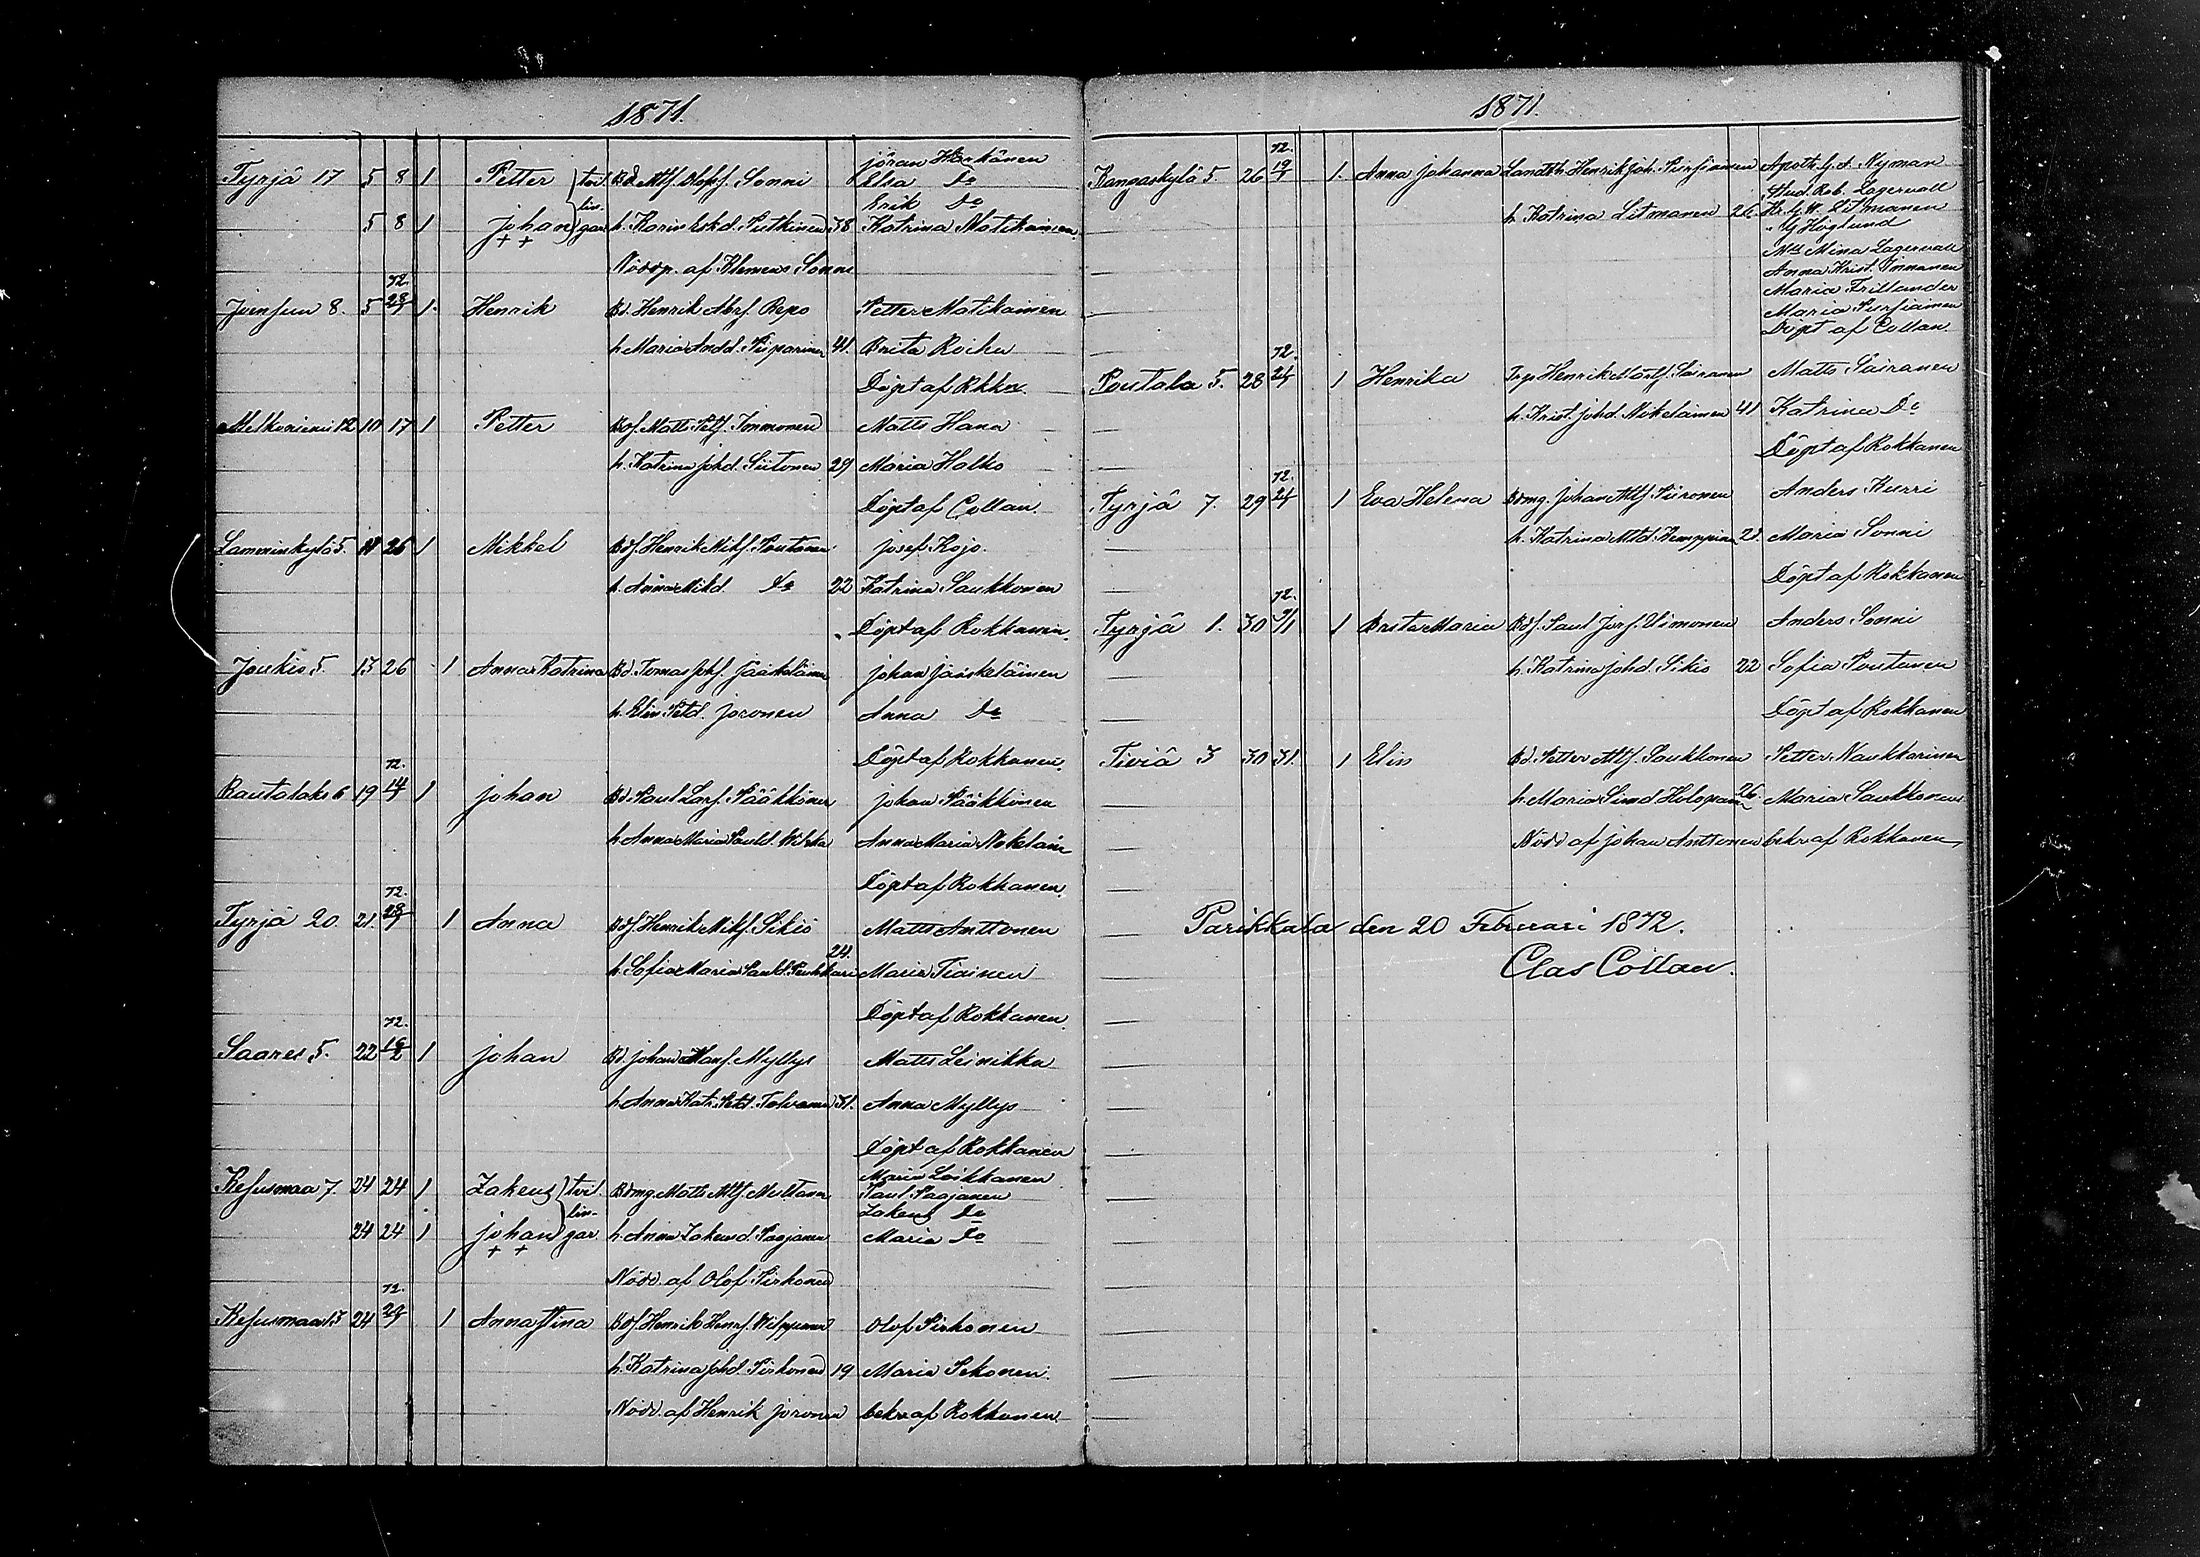 1871.
Tyrjä 17 5 8 1 Petter tvil Bd. Mtf. Olofsf. Sonni Jöran Härkönen
Elsa Do
lin- Erik Do
5 8 1 Johan gar h. Karin Eskd. Putkinen 38 Katrina Matikainen
+ +
Nöddp. af Klemens Sonni
72.
Joensuu 8. 5 28/1 1. Henrik Bd. Henrik Abrf. Repo Petter Matikainen
h. Maria Andd. Piiparinen 41. Brita Roihu
Döpt af Rkkn.
Melkoniemi 12 10 17 1 Petter Bdf. Matts Petf. Immonen Matts Hana
h. Katrina Johd. Siitonen 29 Maria Halko
Döpt af Collan.
Lamminkylä 5. 11 26 1 Mikkel Bdf. Henrik Mikf. Poutanen Josef Kojo.
h. Anna Mikd. Do 22 Katrina Saukkonen
Döpt af Rokkanen.
Joukio 5. 13 26 1 Anna Katrina Bd. Tomas Johf. Jääskeläinen Johan Jääskeläinen
h. Elin Petd. Joronen Anna Do
Döpt af Rokkanen.
72.
Rautalaks 6 19 14/1 1 Johan Bd. Paul Larf. Pääkkönen Johan Pääkkönen
h. Anna Maria Pauld. Wilska Anna Maria Nokelain
Döpt af Rokkanen.
72.
Tyrjä 20. 21. 28/1 1 Anna Bdf. Henrik Mikf. Sikiö Matts Anttonen
24.
h. Sofia Maria Pauld. Puukkari Maria Tiainen
Döpt af Rokkanen.
72.
Saares 5. 22 16/2 1 Johan Bd. Johan Hansf. Myllys Matts Leinikka
h. Anna Kat. Petd. Tolvanen 31. Anna Myllys
Döpt af Rokkanen
Maria Loikkanen
Kesusmaa 7. 24 24 1 Zakeus tvil Bdmg. Matts Mtf. Multanen Paul Paajanen
lin- Zakeus Do
24 24 1 Johan gar. h. Anna Zakeusd. Paajanen Maria Do
+ +
Nödd. af Olof Pirhonen
72.
Kesusmaa 13 24 29/1 1 Anna Stina Bdf. Henrik Henrf. Wilppunen Olof Pirhonen
h. Katrina Johd. Pirhonen 19 Maria Pekonen.
Nödd. af Henrik Joronen bekr af Rokkanen.
1871.
72.
Kangaskylä 5 26 19/1 1. Anna Johanna Landth. Henrik Joh. Pursiainen Apoth. G. A. Nyman
Stud. Rob. Lagervall
h. Katrina Litmanen 26. Hr. G. W. Litmanen
" Höglund
Mll Mina Lagervall
Anna Krist. Immanen
Maria Frilander
Maria Pursiainen
Döpt af Collan
72.
Poutala 5. 28 24/1 1 Henrika Inp. Henrik Mårtf. Sairanen Matts Sairanen
h. Krist. Johd. Nokelainen 41 Katrina Do
Döpt af Rokkanen
72.
Tyrjä 7. 29 24/1 1 Eva Helena Bdmg. Johan Mtf. Piironen Anders Kurri
h. Katrina Mtd. Kemppinen 28. Maria Sonni
Döpt af Rokkanen
72.
Tyrjä 1. 30 9/1 1 Brita Maria Bdf. Paul Jörf. Uimonen Anders Sonni
h. Katrina Johd. Sikiö 22 Sofia Poutanen
Döpt af Rokkanen
Tiviä 3 30 31. 1 Elin Bd. Petter Mtf. Saukkonen Petter Naukkarinen
26.
h. Maria Simd Holopain Maria Saukkonen
Nödd af Johan Anttonen bekr af Rokkanen
Parikkala den 20 Februari 1872.
Clas Collan.